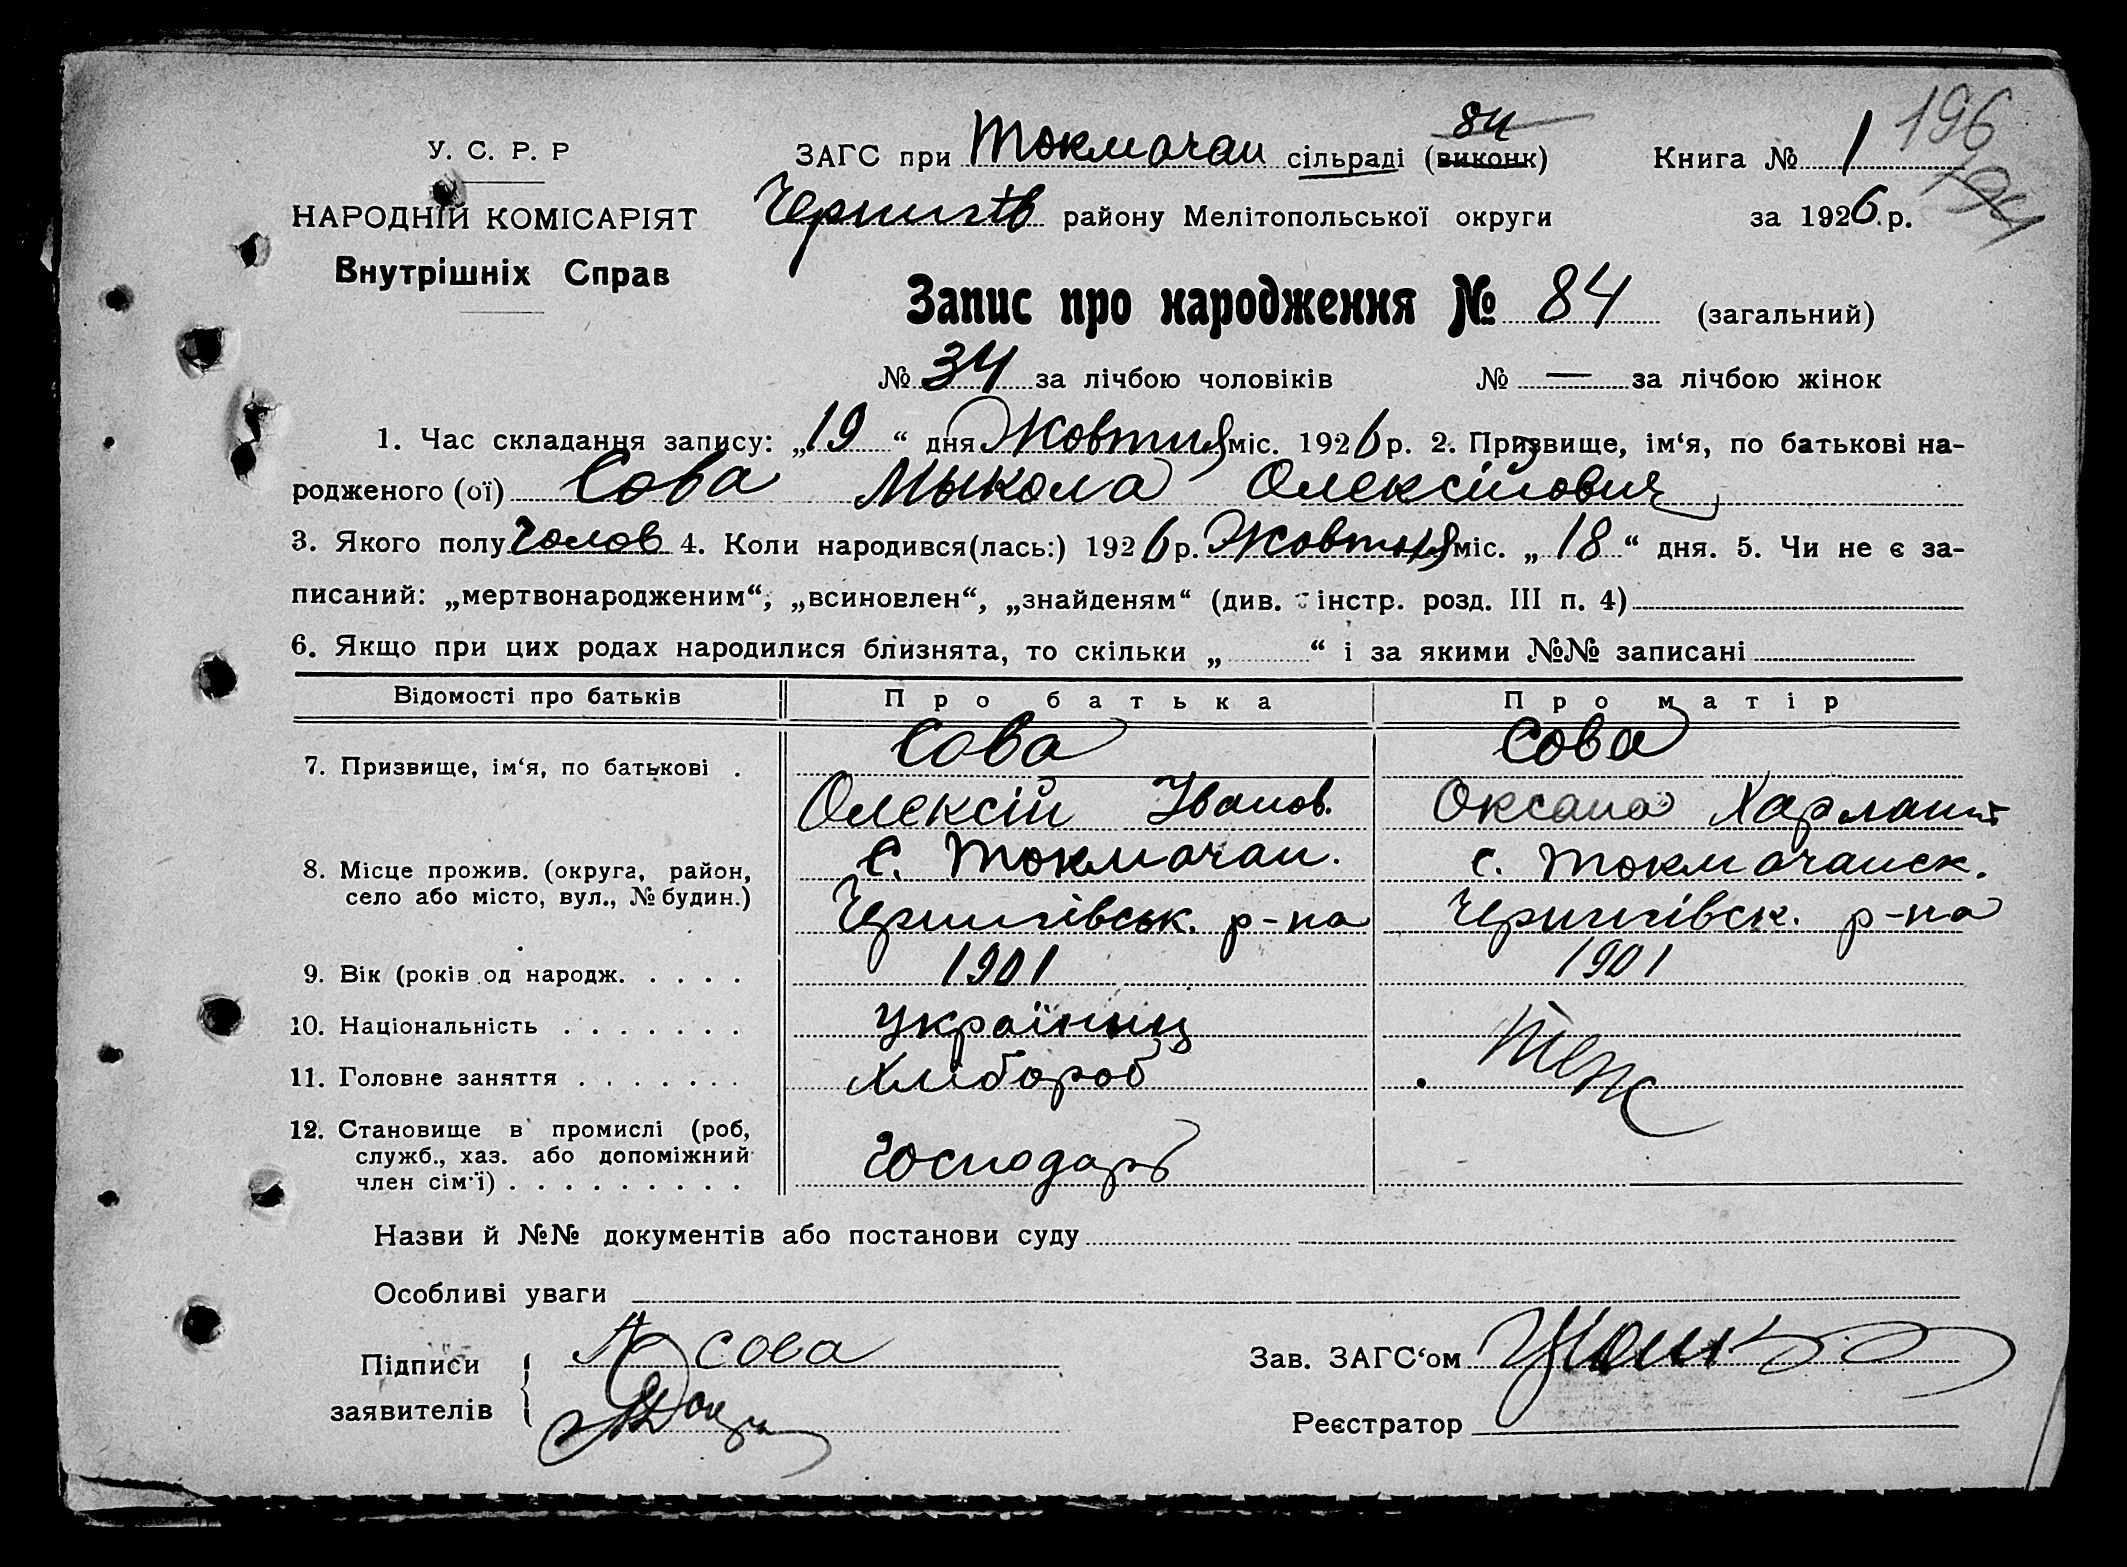 196
194
84
У. С. Р. Р
НАРОДНІЙ КОМІСАРІЯТ
Внутрішніх Справ
ЗАГС при Токмачан сільраді (виконк) Книга № 1
Чернигів району Мелітопольської округи за 1926 р.
Запис про народження № 84 (загальний)
№ 34 за лічбою чоловіків № — за лічбою жінок
1. Час складання запису: „19“ дня Жовтня міс. 1926 р. 2. Призвище, ім‘я, по батькові на-
родженого (ої) Сова Мыкола Олексійович
3. Якого полу Чолов 4. Коли народився(лась:) 1926 р. Жовтня міс. „18“ дня. 5. Чи не є за-
писаний: „мертвонародженим“, „всиновлен“, „знайденям“ (див. інстр. розд. III п. 4)
6. Якщо при цих родах народилися близнята, то скільки „ “ і за якими №№ записані
Відомості про батьків Про батька Про матір
7. Призвище, ім‘я, по батькові . Сова Сова
Олексій Іванов. Оксана
8. Місце прожив. (округа, район, с. Токмачан. с. Токмачанск.
село або місто, вул., № будин.) Чернигівськ. р-на Чернигівск. р-на
9. Вік (років од народж. . . . . 1901 1901
10. Національність . . . . . . . україниц Теж
11. Головне заняття . . . . . . . хлібороб
12. Становище в промислі (роб,
служб., хаз. або допоміжний Господарь
член сім‘ї) . . . . . . . . .
Назви й №№ документів або постанови суду
Особливі уваги
Підписи А Сова Зав. ЗАГС‘ом
заявителів Реєстратор